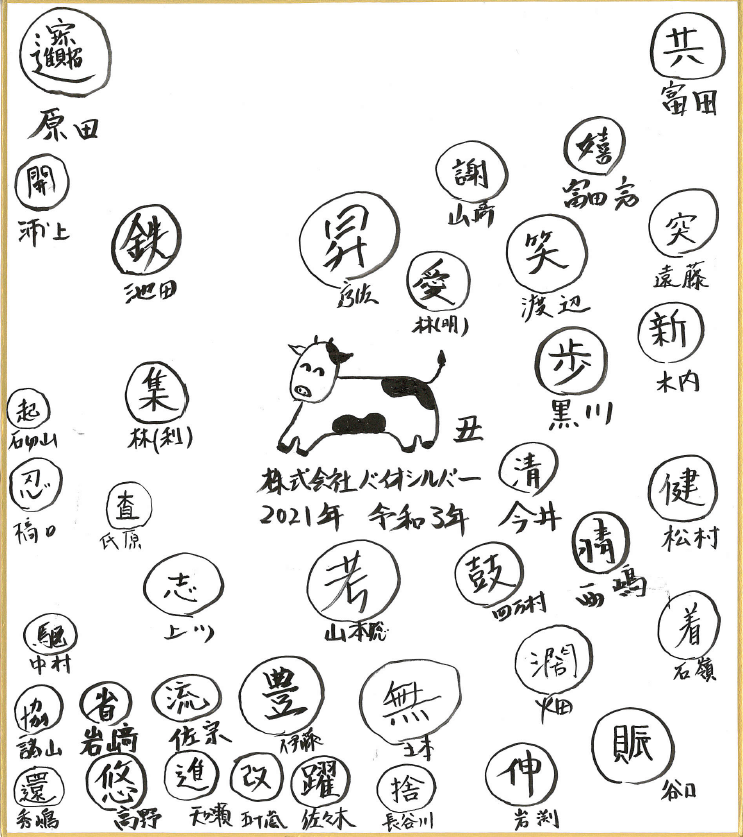 原田
共
富田
謝
山崎
嬉
富田方
開
浦上
鉄
池田
昇
愛
林(明)
笑
渡辺
突
遠藤
新
木内
歩
黒川
集
林(利)
起
石切山
丑
株式会社バイオシルバー
2021年 令和3年
清
今井
健
松村
忍
橋口
査
氏原
晴
西嶋
志
上川
考
山本聡
鼓
四方村
着
石嶺
駆
中村
潤
畑
協
諸山
省
岩崎
流
佐宗
豊
伊藤
無
土本
賑
谷口
還
秀嶋
悠
高野
進
天野瀬
改
五十嵐
躍
佐々木
捨
長谷川
伸
岩渕